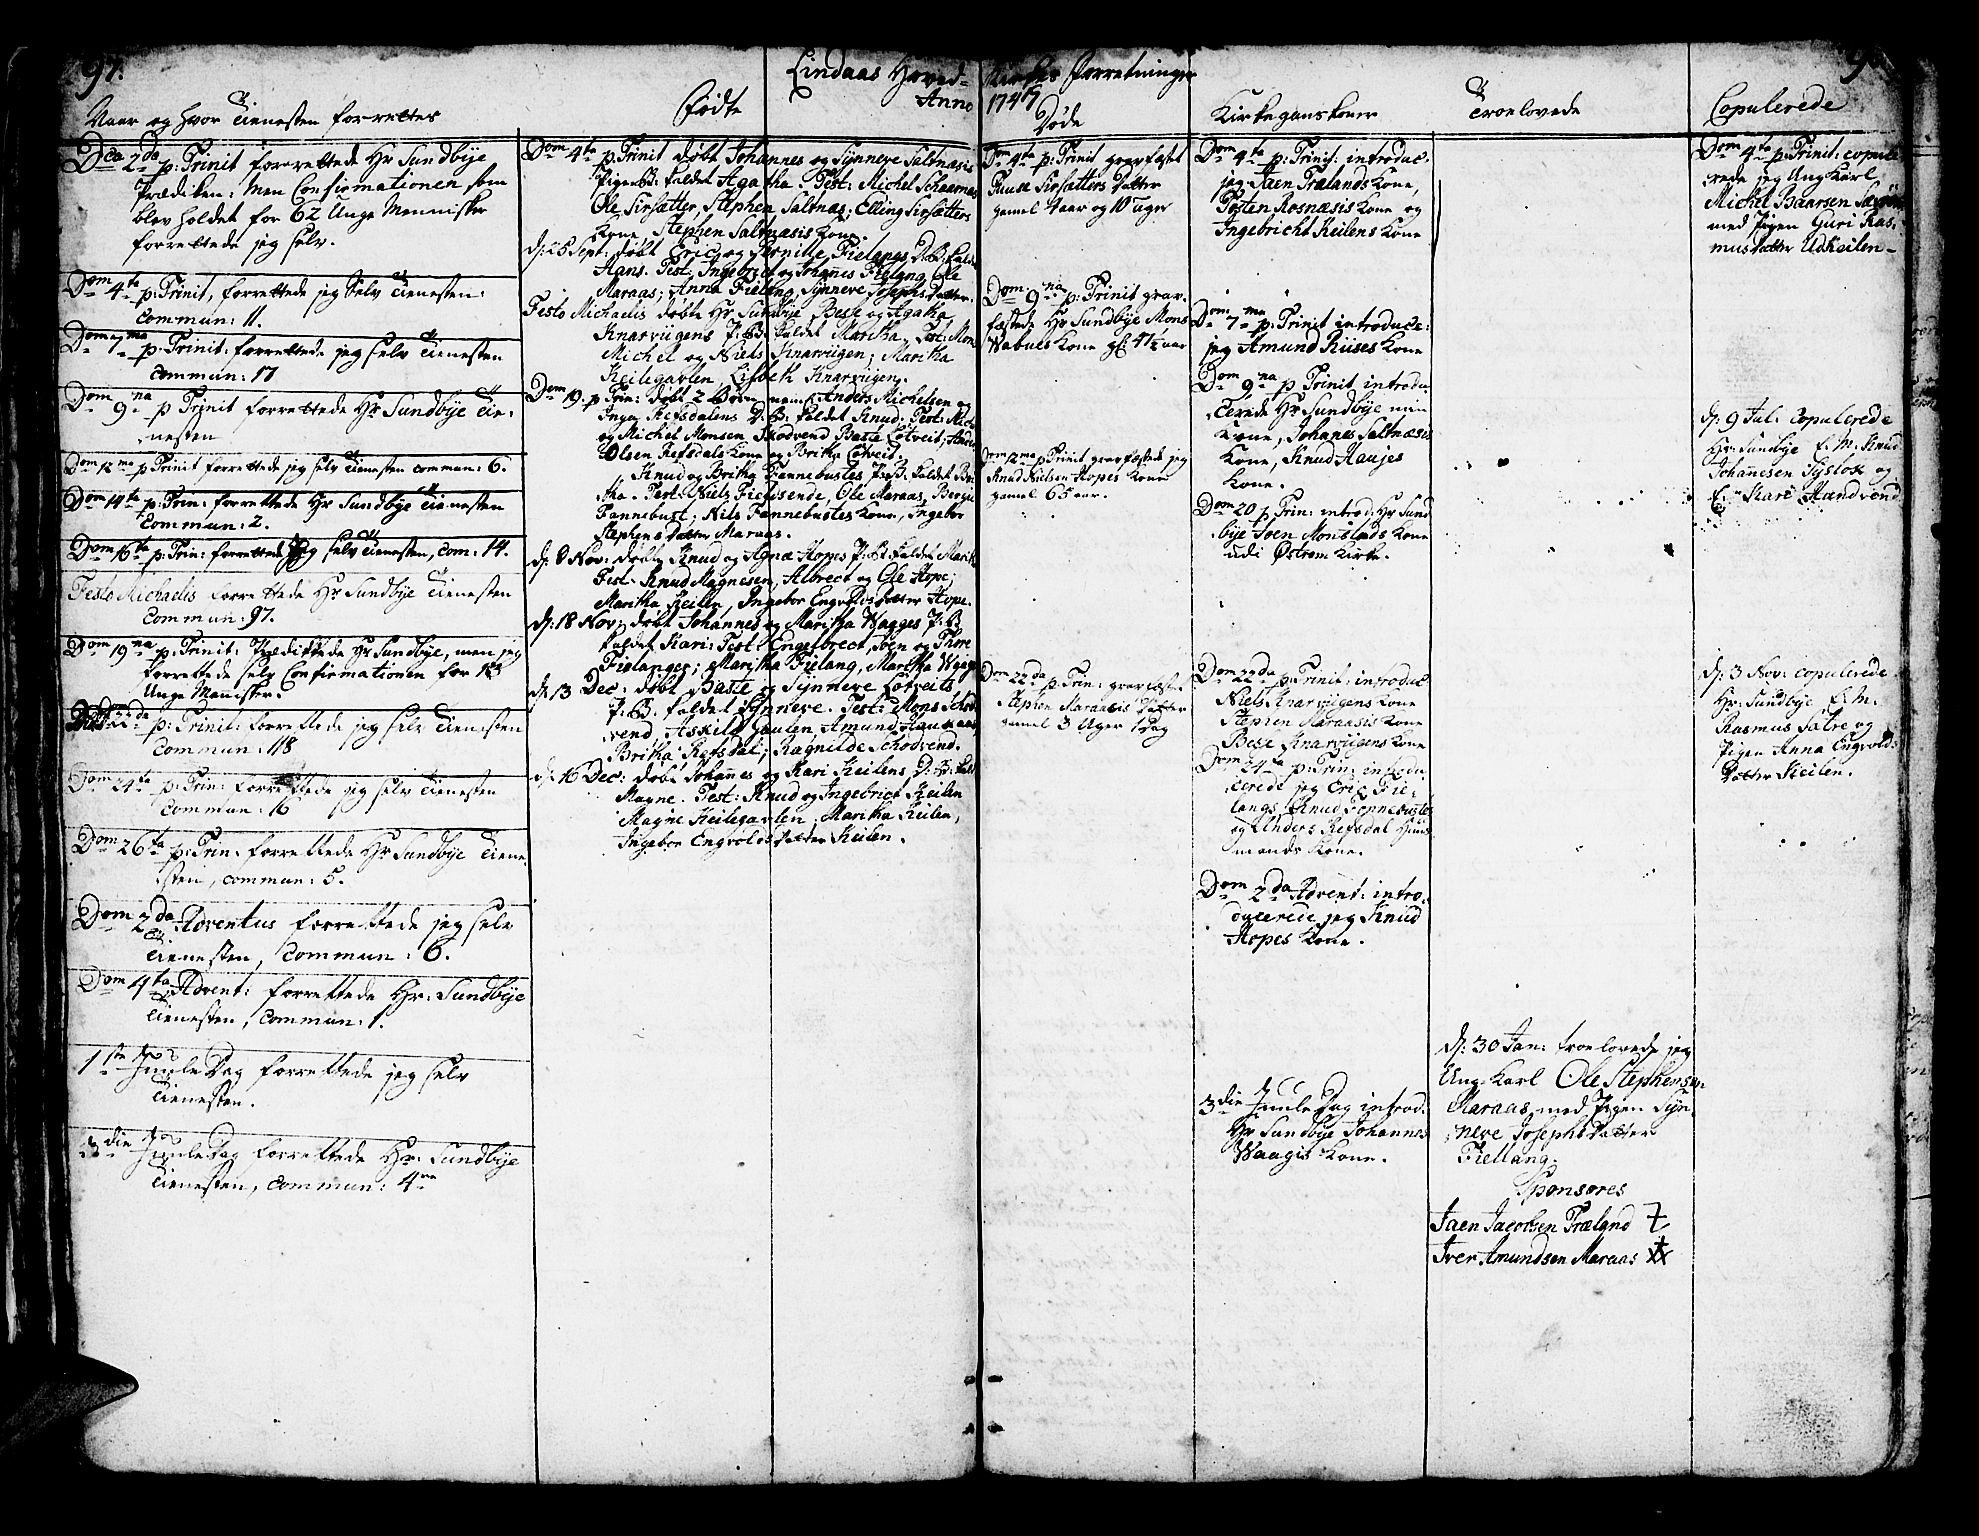 97.
Lindaas Hoved-
Anno
Kirkes Forretninger
1747
Naar og Hvor Tienesten forrettes
Fødte
Døde
Kirkegangskoner
Troelovede
Copulerede
Dca 2da p: Trinit forrettede Hr Sundbÿe
Prædiken: Men Confirmationen som
blev holdet for 62 Unge Mennisker
forrettede jeg selv.
Dom 4ta p: Trinit, forrettede jeg Selv Tienesten:
Commun: 11.
Dom 7ma p: Trinit: forrettede jeg selv Tienesten
Commun: 17
Dom 9na p Trinit forrettede Hr Sundbÿe Tie:
nesten
Dom 12ma p Trinit forrettede jeg selv Tienesten commun: 6.
Dom 14ta p: Trin: forrettede Hr Sundbÿe Tienesten
Commun: 2.
Dom 16ta p: Trin: forrettede jeg selv Tienesten, com: 14.
Festo Michaelis forrettede Hr Sundbÿe Tienesten
Commun: 97.
Dom 19na p: Trinit: Prædikede Hr Sundbÿe, men jeg
forrettede selv Confirmationen for
Unge Mennisker.
22da p: Trinit: forrettede jeg selv Tienesten
Commun: 118
Dom 24ta p: Trin: forrettede jeg selv Tienesten
Commun: 16
Dom 26ta p: Trin: forrettede Hr Sundbÿe Tiene
sten, commun: 5.
Dom 2da Adventus forrettede jeg selv
Tienesten, Commun: 6.
Dom 4ta Advent: forrettede Hr: Sundbÿe
Tienesten, Commun: 1.
1ste Juule Dag forrettede jeg selv
Tienesten.
3die Juule Dag forrettede Hr: Sundbÿe
Tienesten, commun: 4re
Dom 4ta p: Trinit døbt Johannes og Sÿnneve Saltnæsis
PigeB: kaldet Agatha. Test: Michel Schaarnas
Ole Sirsætter, Stephen Saltnæs; Elling Sirsætters
Kone, Stephen Saltnæsis Kone.
d: 25 Sept: døbt Eric og Pernille Fielangs D: B: kaldet
Hans. Test: Ingebret og Johanis Fielang, Ole
Maraas; Anna Fielang, Sÿnneve JosephsDatter.
Festo Michaelis døbte Hr Sundbÿe Bese og Agatha
Knarviigens P: B: kaldet Maritha, Test: Mons
Michel og Niels Knarviigen; Maritha
Keilegavlen, Lisbeth Knarviigen.
Dom 19. p Trin: døbt 2 Børn neml: Anders Michelsen og
Inga Refsdalens D: B: kaldet Knud. Test:
og Michel Monsen Skodvend Baste Løtveit;
Olsen Refsdals Kone og Britha Løtveit.
Knud og Britha Fannebustes P: B: kaldet Bri
tha. Test: Niels Fieldsende, Ole Maraas,
Fannebust; Nils Fannebustes Kone, Ingebor
Stephens Datter Maraas.
d: 8 Nov: døbt Knud og Agnæ Hopes P: B: kaldet Marit
Test. Knud Magnesen, Albrect og Ole Hope;
Maritha Keilen, Ingebor EngvoldsDatter Hope.
d: 18 Nov: døbt Johannes og Maritha Wagges P: B
kaldet Kari: Test: Engelbrect, Joen og Thore
Fielanger; Maritha Fielang, Maritha
d: 13 Dec: døbt Baste og Sÿnneve Løtveits
P: B. kaldet Sÿnneve. Test: Mons Schod
vend, Askild Gaulen, Amund
Britha Refsdal; Ragnilde Schodvend.
d: 16 Dec: døbt Johannes og Kari Keilens, D: B: kald
Magne. Test: Knud og Ingebrict Keilen
Magne Keilegavlen, Maritha Keilen,
Ingebor EngvoldsDatter Keilen.
Dom 4ta p: Trinit gravfæstet
Sirsætters Datter
gamel 4 aar og 10 Uger
Dom: 9na p: Trinit grav.
fæstede Hr Sundbÿe Mons
Kone gl: 41½ aar
Dom 12ma p: Trinit gravfæstede jeg
Knud Nielsen Hopes Kone
gamel 65 aar.
Dom 22da p: Trin: gravfæstet
Stephen Maraasis Datter
gamel 3 Uger 1 Dag
Dom 4ta p: Trinit: introduc.
jeg Jaen Trælands Kone,
Tosten Rosnæsis Kone og
Ingebricht Keilens Kone
Dom 7ma p: Trinit introduce:
jeg Amund Riises Kone
Dom 9na p Trinit introdu
cerede Hr Sundbÿe min
Kone, Johanes Saltnæsis
Kone, Knud Haujes
Kone.
Dom 20 p Trin: introd: Hr Sund
bÿe Joen Monslads Kone
udi Østrem Kirke.
Dom 22da p: Trinit: introduc
Niels Knarviigens Kone
Stephen Maraasis Kone
Bese Knarviigens Kone
Dom 24ta p: Trin: introdu
cerede jeg Eric Fie
langs, Knud Fannebustes
og Anders Refsdal Huus
mands Kone.
Dom 2da Advent: intro
ducerede jeg Knud
Hopes Kone.
3die Juule Dag introd.
Hr Sundbÿe Johannes
Waagis Kone.
d: 30 Jan: troelovede jeg
Ung-Karl Ole Stephensen
Maraas med Pigen Sÿn
neve JosephsDatter
Fiellang.
Sponsores
Jaen Jacobsen Træland
Iver Amundsen Maraas
Dom 4ta p: Trinit: copule
rede jeg Ung Karl
Michel Baarsen
med Pigen Guri Ras
musDatter Udkeilen-
d: 9 Jul: copulerede
Hr: Sundbÿe E. M. Knud
Johannesen Tÿsløe og
E. Kari Hundvend
d: 3 Nov: copulerede
Hr: Sundbÿe, E. M.
Rasmus Satre og
Pigen Anna Engvold:
Datter Keilen.